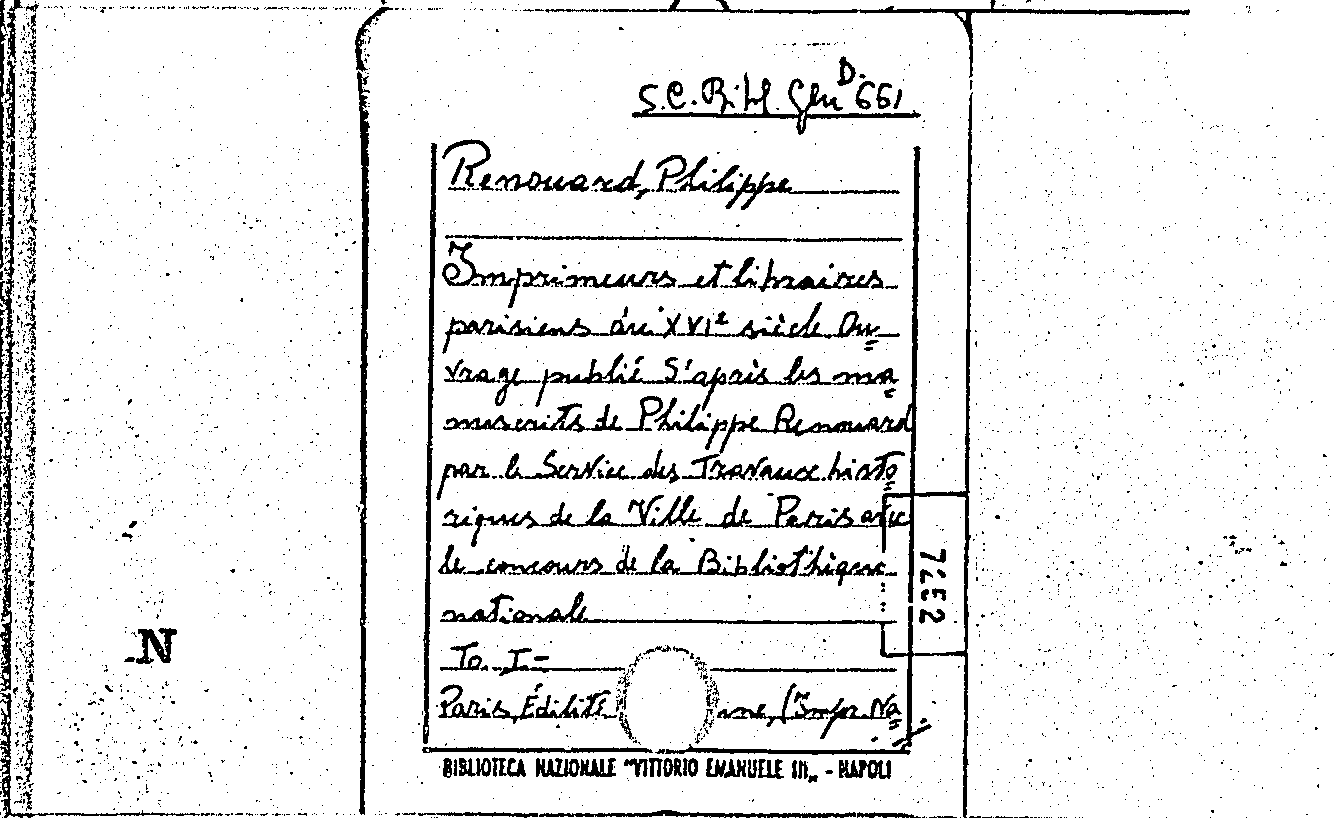 S.C. Bibl. Gen. D. 661
Renouard, Philippe
Imprimeurs et libraires
parisiens du XVIe siècle Ou=
vrage publié d'après les ma=
nuscrits de Philippe Renouard
par le Service des Travaux histo=
riques de la Ville de Paris avec
le concours de la Bibliothèque
nationale
To. I-
Paris, Édilité
ne, (Impr. Na=
BIBLIOTECA NAZIONALE "VITTORIO EMANUELE III„ - NAPOLI
N